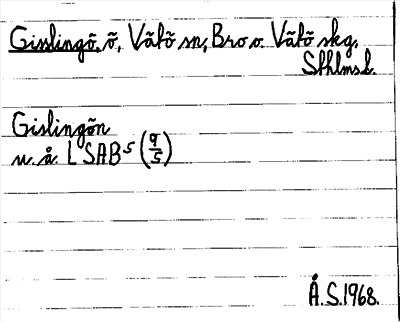 Gisslingö, ö, Vätö sn, Bro o. Vätö skg.
Sthlms l.
Gislingön
u. å. L SAB 5 (9/5)
Å.S. 1968.